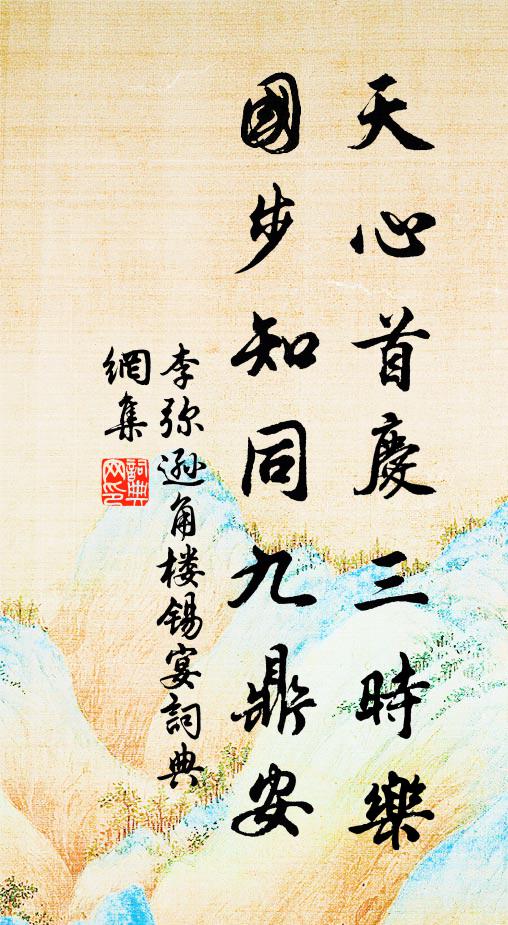 天心首慶三時樂
國步知同九鼎安
李弥遜角楼锡宴詞典
網集
詞典网印